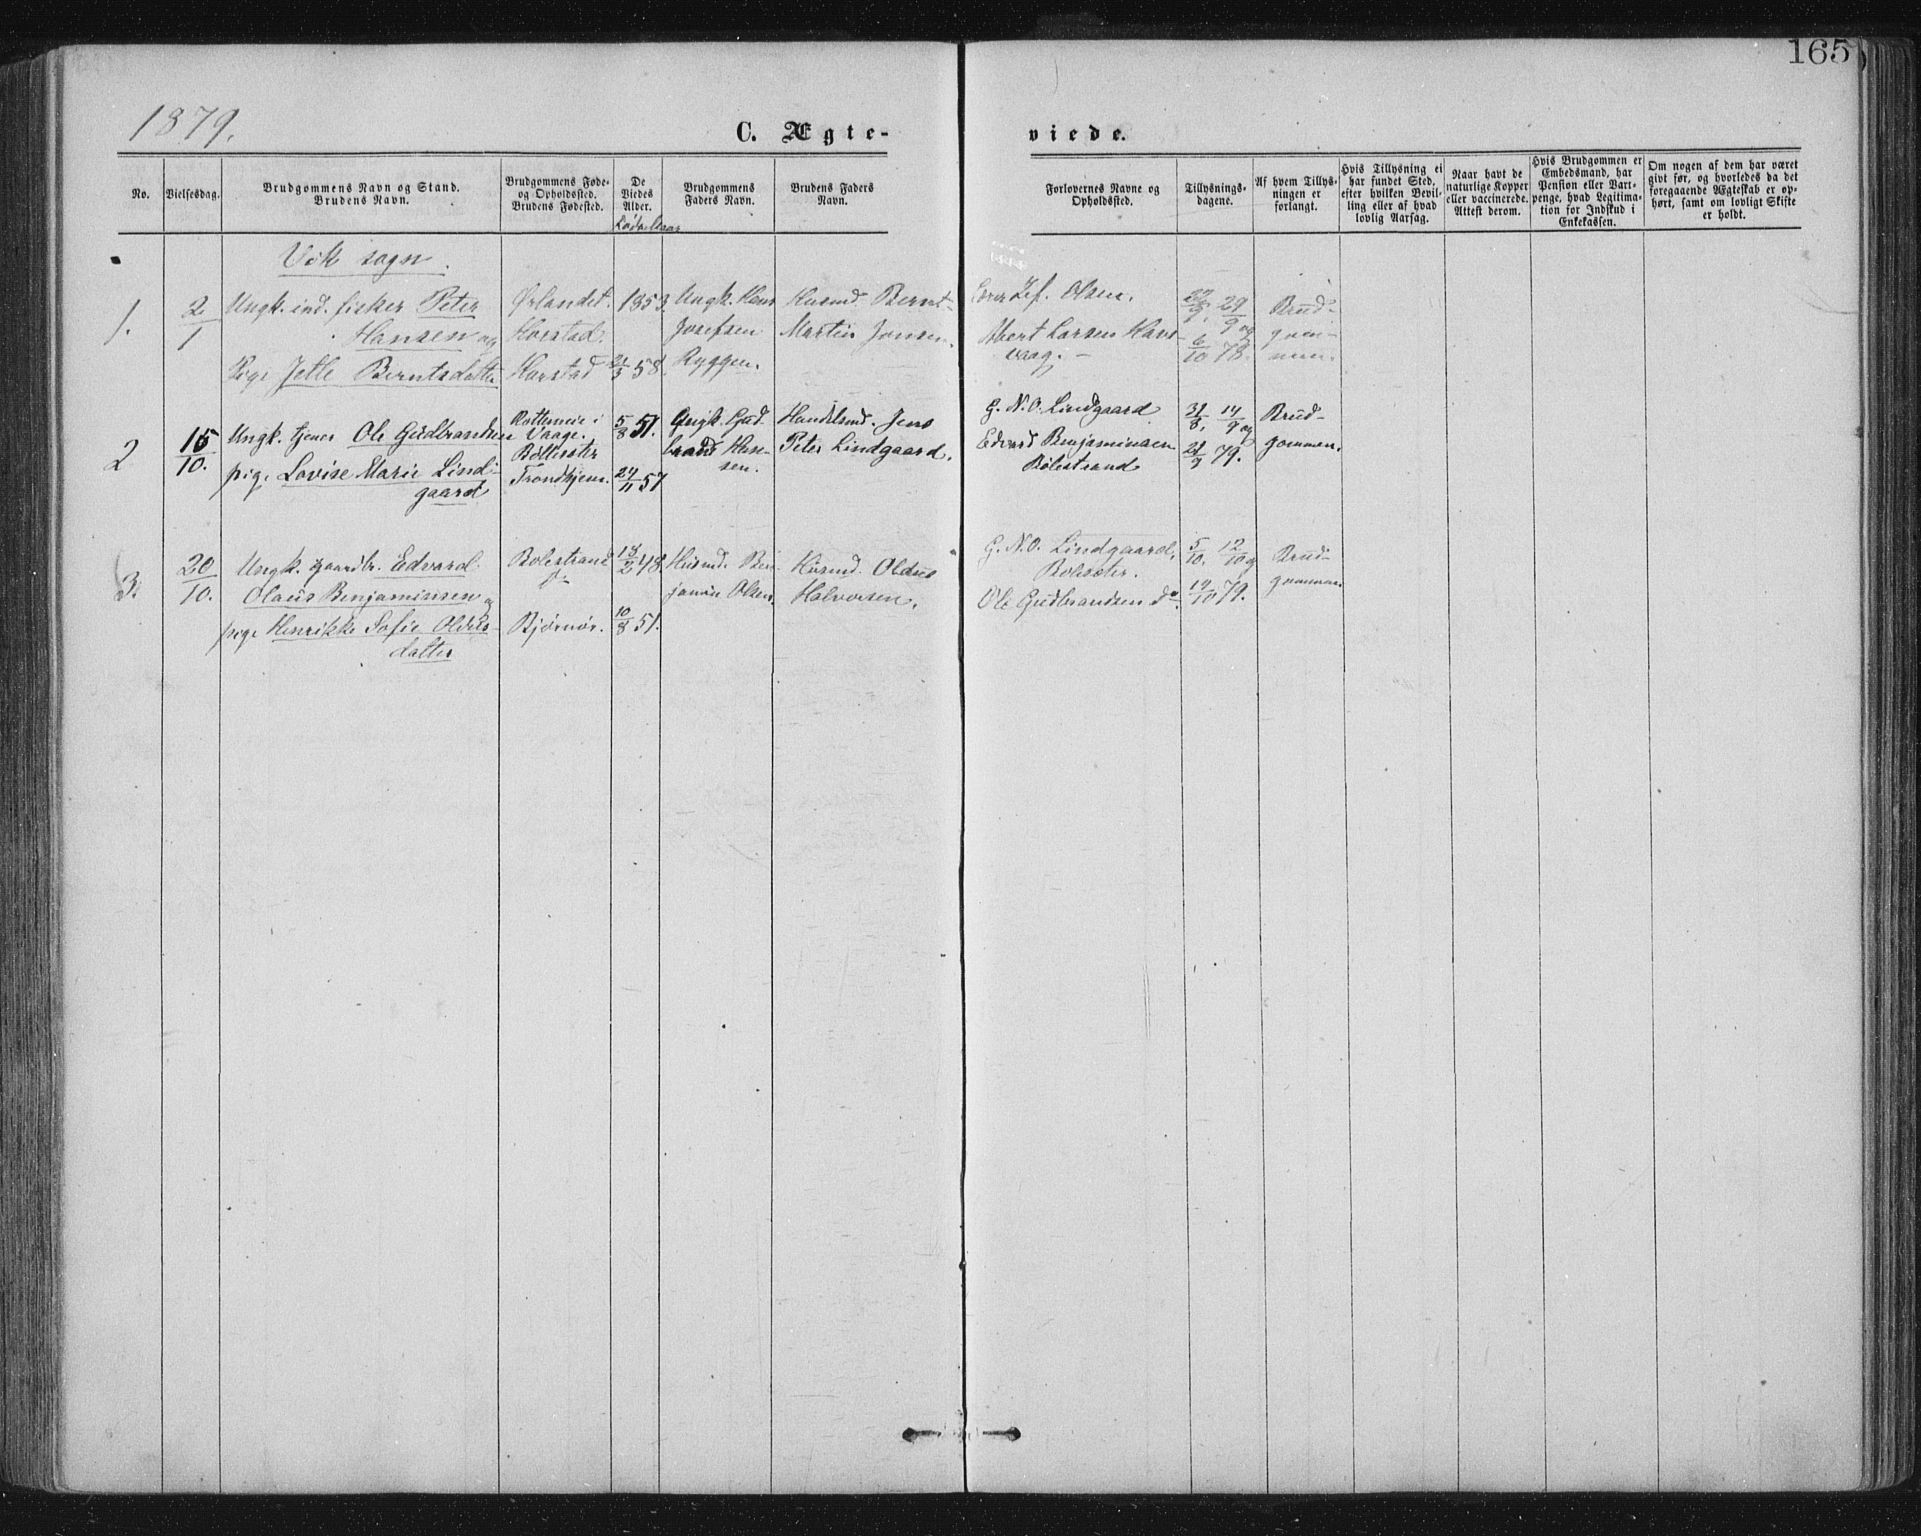 165
1879.
C. Ægte-
viede.
No.
Vielsesdag.
Brudgommens Navn og Stand.
Brudens Navn.
Brudgommens Føde-
og Opholdssted.
Brudens Fødested.
De
Viedes
Alder.
Brudgommens
Faders Navn.
Brudens Faders
Navn.
Forlovernes Navne og
Opholdssted.
Tillysnings-
dagene.
Af hvem Tillys-
ningen er
forlangt.
Hvis Tillysning ei
har fundet Sted,
efter hvilken Bevil-
ling eller af hvad
lovlig Aarsag.
Naar havt de
naturlige Kopper
eller vaccinerede.
Attest derom.
Hvis Brudgommen er
Embedsmand, har
Pension eller Vart-
penge, hvad Legitima-
tion for Indskud i
Enkekassen.
Om nogen af dem har været
givt før, og hvorledes da det
foregaaende Ægteskab er op-
hørt, samt om lovligt Skifte
er holdt.
Vik sogn.
1.
2/1
Ungk. ind. fisker Peter
Hansen og
Pige Jette Berntsdatter
Ørlandet.
Horstad.
Horstad
1853.
58.
Ungk. Hans
Josefsen
Ryggen.
Husmd. Bernt
Martin Jonsen.
Olsen.
Albert Larsen
vaag.
29/9 og
6/10 78.
Brud-
gom-
men.
2
15/10.
Ungk. tjener Ole Gudbrandsen
pige Lovise Marie Lind-
gaard
Vaage.
Trondhjem.
5/8 51.
24/11 57
Ungk. Gud-
brand Han-
sen.
Handelsmd. Jens
Peter Lindgaard.
G. N. O. Lindgaard
Edvard Benjaminsen
Bolestrand
31/8, 14/9 og
21/9 79.
Brud-
gommen.
3.
20/10.
Ungk. gaardbr. Edvard
Olaus Benjaminsen og
pige Henrikke Sofie Oldus-
datter
Bolestrand
Bjørnør.
18/2 48.
10/8 51.
Husmd. Ben-
jamin Olsen.
Husmd. Oldus
Halvorsen.
G. N. O. Lindgaard,
Ole Gudbrandsen do.
5/10. 12/10 og
19/10 79.
Brud-
gommen.